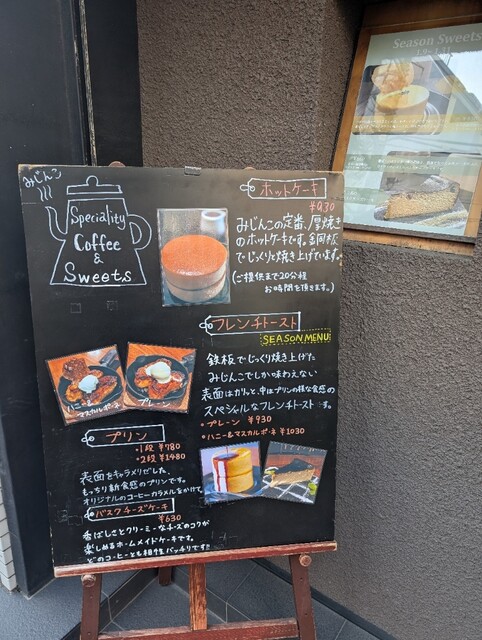 みじんこ
Speciality
Coffee
&
Sweets
ホットケーキ
¥930
みじんこの定番、厚焼き
のホットケーキです。銅板
でじっくりと焼き上げています。
(ご提供まで20分程
お時間を頂きます。)
フレンチトースト
SEASON MENU
鉄板でじっくり焼き上げた
みじんこでしか味わえない
表面はカリっと、中はプリンの様な食感の
スペシャルなフレンチトーストです。
・プレーン ¥930
・ハニー&マスカルポーネ ¥1030
ハニー&
マスカルポーネ
プレーン
プリン
・1段 ¥780
・2段 ¥1480
表面をキャラメリゼした、
もっちり新食感のプリンです。
オリジナルのコーヒーカラメルをかけて。
バスクチーズケーキ
¥630
香ばしさとクリーミーなチーズのコクが
楽しめるホームメイドケーキです。
どのコーヒーとも相性バッチリです!!
Season Sweets